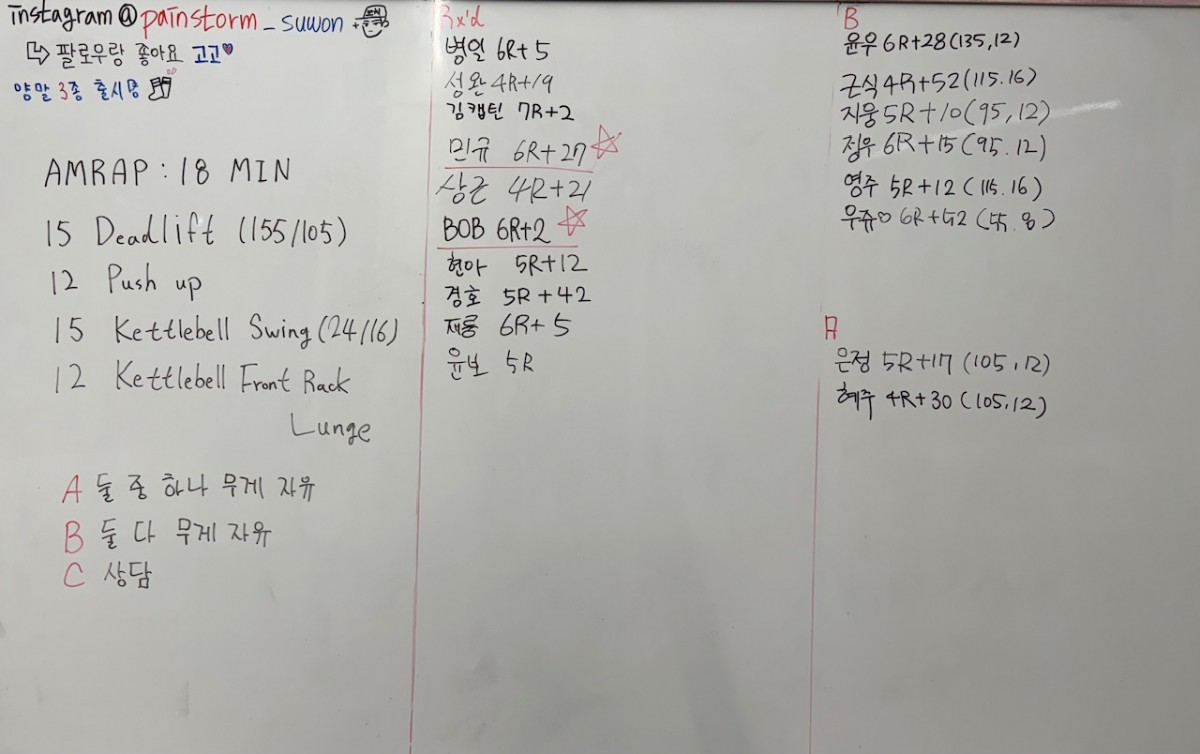 instagram@painstorm_suwon
팔로우랑 좋아요 고고
양말 3종 출시명
AMRAP : 18 MIN
15 Deadlift (155/105)
12 Push up
15 Kettlebell Swing (24/16)
12 Kettlebell Front Rack
Lunge
A 둘 중 하나 무게 자유
B 둘 다 무게 자유
C 상담
Rx'd
병일 6R+5
성완 4R+19
김캡틴 7R+2
민규 6R+27
상근 4R+21
BOB 6R+2
현아 5R+12
경호 5R+42
재룡 6R+5
윤보 5R
B
윤우 6R+28 (135,12)
근식 4R+52 (115.16)
지웅 5R+10 (95,12)
정우 6R+15 (95.12)
영주 5R+12 (115.16)
우쥬 6R+42 (55.8)
A
은정 5R+17 (105,12)
혜주 4R+30 (105,12)